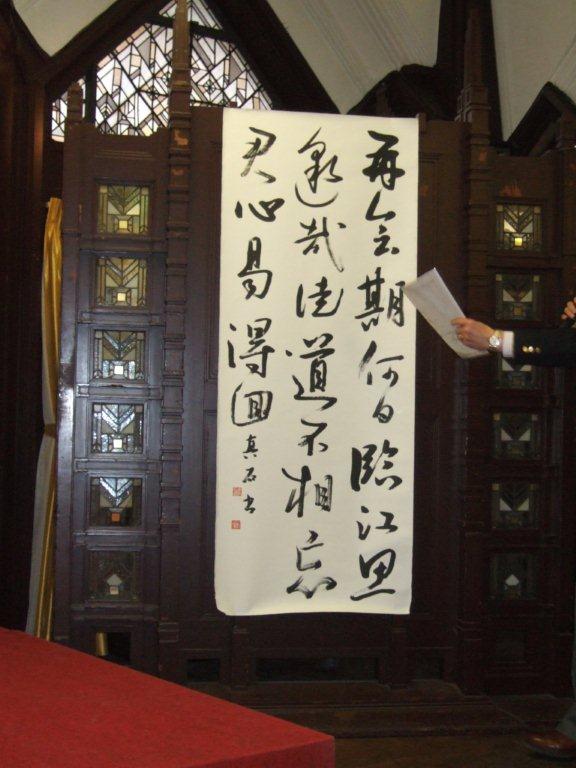 再会期何日臨江思
邈哉徒道不相忘
君心易得回 真石書